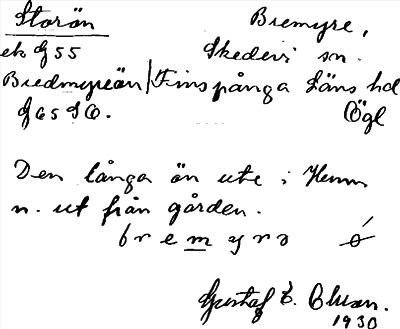 Storön Bremyre,
ek G 55 Skedevi sn.
Bredmyreön / Finspånga Läns hd
G 65 SO. Ögl
Den långa ön ute i Hunn
n. ut från gården.
bremyrə ó
Gustaf E. Olsson.
1930